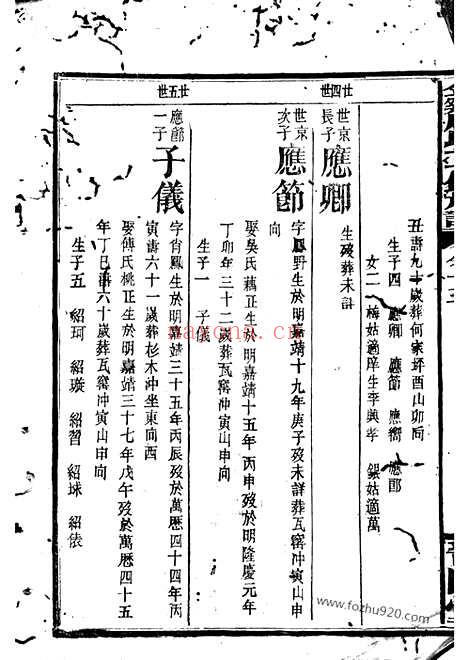 丑壽九十歲葬何家坪酉山卯向
生子四 應卿 應節 應嚮 應鄙
女二 梅姑適庠生李興孝 銀姑適萬
廿四世
世京長子 應卿 生殁葬未詳
世京次子 應節 字鳳野生於明嘉靖十九年庚子殁未詳葬瓦窰冲寅山申
向
娶吳氏藕正生於明嘉靖十五年丙申殁於明隆慶元年
丁卯年三十二歲葬瓦窰冲寅山申向
生子一 子儀
廿五世
應節一子 子儀 字肖鳳生於明嘉靖三十五年丙辰殁於萬歷四十四年丙
寅壽六十一歲葬杉木冲坐東向西
娶傅氏桃正生於明嘉靖三十七年戊午殁於萬歷四十五
年丁巳壽六十歲葬瓦窰冲寅山申向
生子五 紹珂 紹璇 紹習 紹球 紹俵
nayona.cn
www.fozhu920.com